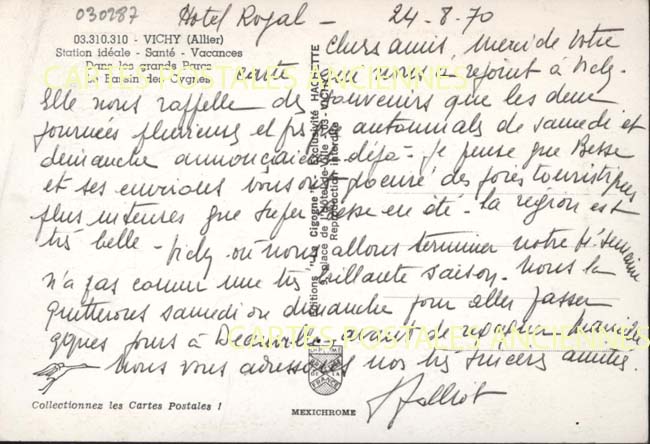 030287
Hotel Royal - 24-8-70
03.310.310 - VICHY (Allier)
Station idéale - Santé - Vacances
Dans les grands Parcs
Le Bassin des Cygnes
Chers amis, merci de votre
carte que nous a rejoint à Vichy.
Elle nous rappelle des souvenirs que les deux
journées pluvieuses et automnales de samedi et
dimanche annonçaient déjà - Je pense que Besse
et ses environs vous ont procuré des joies touristiques
plus intenses que Super Besse en été - La région est
très belle - Vichy où nous allons terminer notre semaine
n'a pas connu une très brillante saison. Nous la
quitterons samedi ou dimanche pour aller passer
qques jours à Deauville avant de
Nous vous adressons nos très sincères amitiés.
CARTES POSTALES ANCIENNES
CARTES POSTALES ANCIENNES
Editions "La Cigogne" - Exclusivité HACHETTE
place de l'Hôtel-de-Ville - 03-VICHY
Reproduction interdite
FRANCE
Collectionnez les Cartes Postales !
MEXICHROME